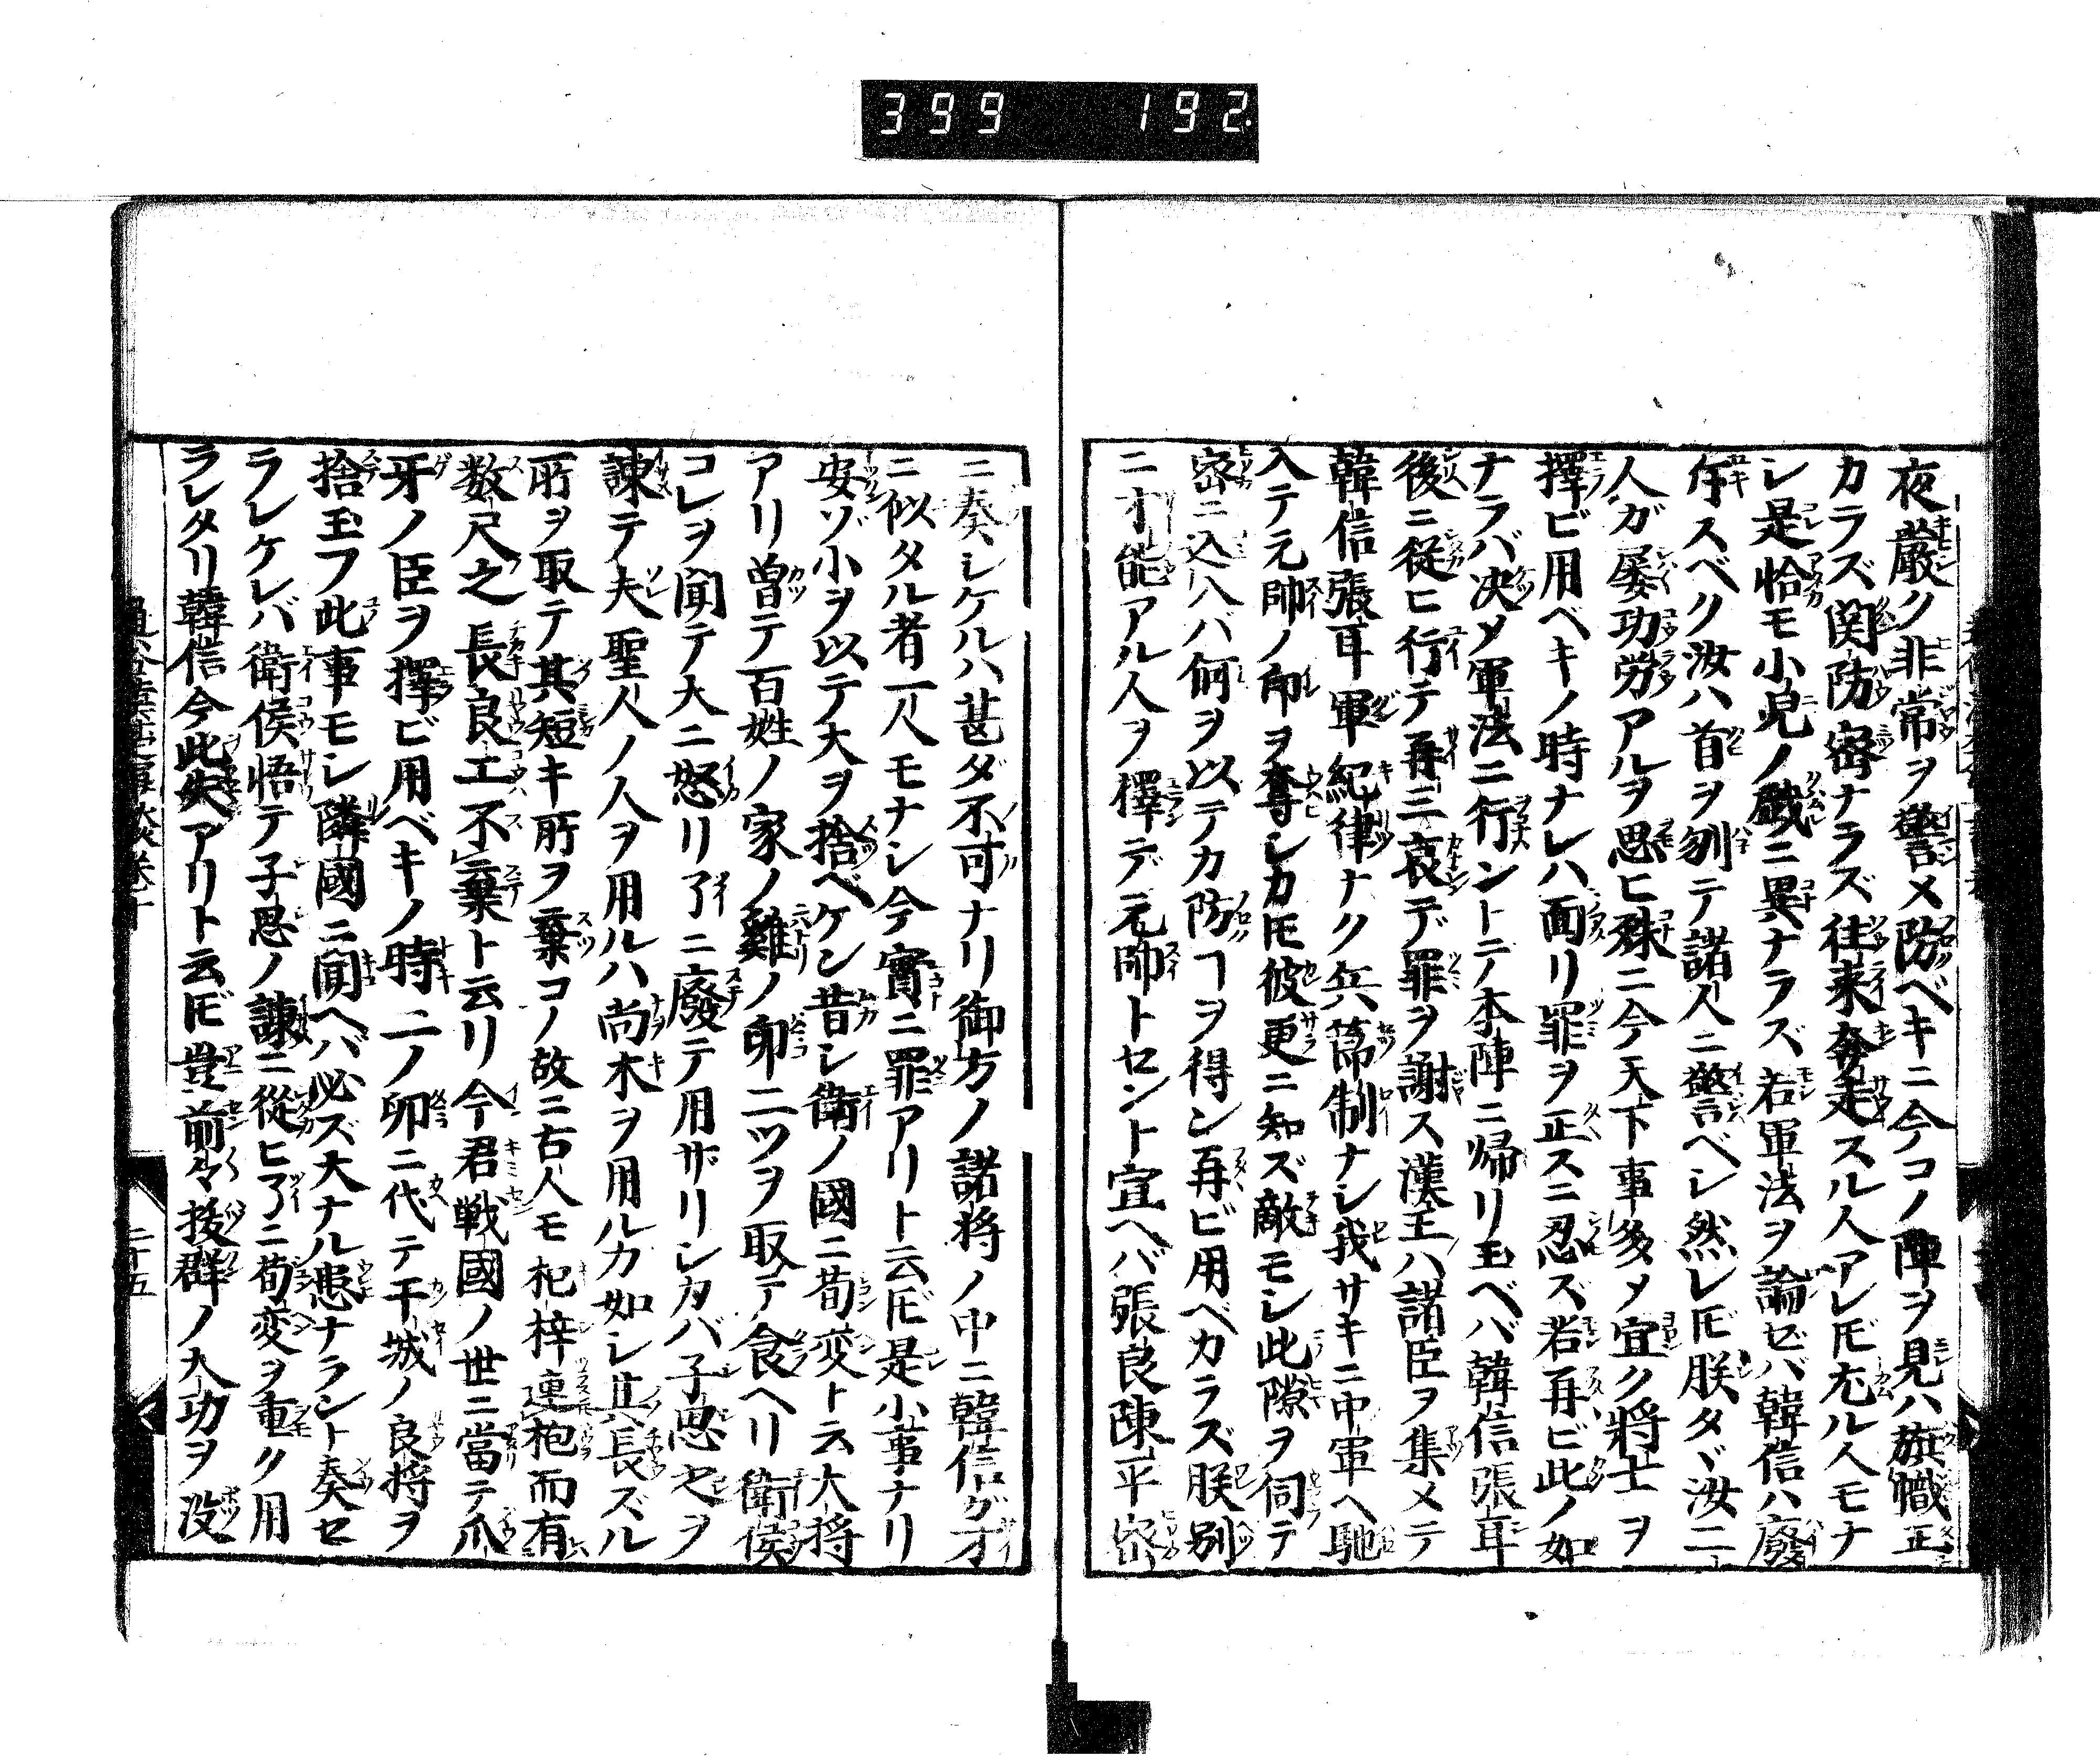 399 192
夜嚴ク非常ヲ警メ防ベキニ今コノ陣ヲ見ハ旗幟正
カラズ関防密ナラズ往来奔走スル人アレ𪜈尤ル人モナ
シ是恰モ小児ノ戯ニ異ナラズ若軍法ヲ論ゼバ韓信ハ廢
斥スベク汝ハ首ヲ刎テ諸人ニ警ベシ然レ𪜈朕タヾ汝二
人ガ屡功労アルヲ思ヒ殊ニ今天下事多メ宜ク將士ヲ
擇ビ用ベキノ時ナレハ面リ罪ヲ正スニ忍ズ若再ビ此ノ如
ナラバ决メ軍法ニ行ントテ本陣ニ帰リ玉ベバ韓信張耳
後ニ従ヒ行テ再三哀デ罪ヲ謝ス漢王ハ諸臣ヲ集メテ
韓信張耳軍紀律ナク兵節制ナシ我サキニ中軍ヘ馳
入テ元帥ノ印ヲ奪シカ𪜈彼更ニ知ズ敵モシ此隙ヲ伺テ
密ニ込ハバ何ヲ以テカ防ヿヲ得ン再ビ用ベカラズ朕別
ニ才能アル人ヲ擇デ元帥トセント宣ヘバ張良陳平密
ニ奏シケルハ甚ダ不可ナリ御方ノ諸将ノ中ニ韓信ガ才
ニ似タル者一人モナシ今實ニ罪アリト云𪜈是小事ナリ
安ゾ小ヲ以テ大ヲ捨ベケン昔シ衛ノ國ニ荀変ト云大将
アリ曽テ百姓ノ家ノ雞ノ卵二ツヲ取テ食ヘリ衛侯
コレヲ聞テ大ニ怒リ了ニ廢テ用ザリシカバ子思之ヲ
諫テ夫聖人ノ人ヲ用ルハ尚木ヲ用ルカ如シ其長ズル
所ヲ取テ其短キ所ヲ棄コノ故ニ古人モ杞梓連抱而有
数尺之長良工不棄ト云リ今君戦國ノ世ニ當テ爪
牙ノ臣ヲ擇ビ用ベキノ時二ノ卵ニ代テ干城ノ良将ヲ
捨玉フ此事モシ隣國ニ聞ヘバ必ズ大ナル患ナラント奏セ
ラレケレバ衛侯悟テ子思ノ諌ニ從ヒ了ニ荀変ヲ重ク用
ラレタリ韓信今此失アリト云𪜈豈前々抜群ノ大功ヲ没
二十五